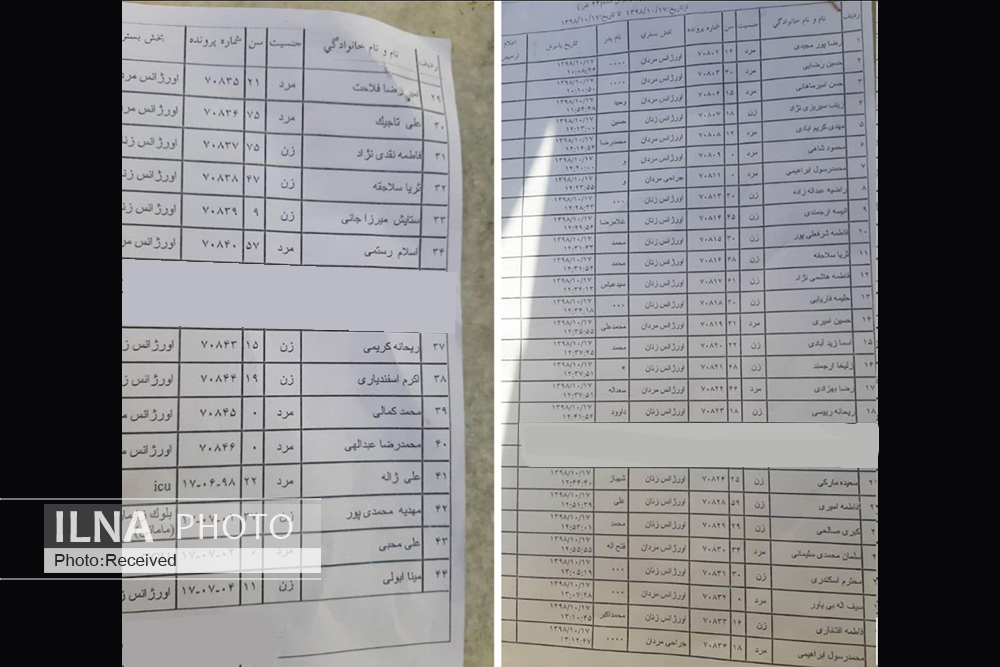 (تاریخ: ۱۳۹۸/۱۰/۱۷ تا تاریخ: ۱۳۹۸/۱۰/۱۷)
ردیف نام و نام خانوادگي جنسیت سن شماره پرونده بخش بستري نام پدر تاریخ پذیرش
۱ رضا پور مجیدی مرد ۱۶ ۷۰۸۰۲ اورژانس مردان ۱۳۹۸/۱۰/۱۷
۲ حسین رضایی مرد ۴۰ ۷۰۸۰۳ اورژانس مردان ۱۳۹۸/۱۰/۱۷
۳ حسن امیرماهانی مرد ۱۵ ۷۰۸۰۴ اورژانس مردان وحید ۱۳۹۸/۱۰/۱۷
۴ زینب سبریزی نژاد زن ۱۸ ۷۰۸۰۷ اورژانس زنان حسین ۱۳۹۸/۱۰/۱۷ ۱۲:۱۳:۰۰
۵ مهدی کریم آبادی مرد ۱۲ ۷۰۸۰۸ اورژانس مردان محمدرضا ۱۳۹۸/۱۰/۱۷
۶ محمود شاهی مرد ۰ ۷۰۸۰۹ اورژانس مردان و ۱۳۹۸/۱۰/۱۷
۷ محمدرسول ابراهیمی مرد ۰ ۷۰۸۱۱ جراحی مردان و ۱۳۹۸/۱۰/۱۷ ۱۲:۲۳:۵۵
۸ راضیه عبداله زاده زن ۳۰ ۷۰۸۱۳ اورژانس زنان ۱۳۹۸/۱۰/۱۷
۹ انیسه ارجمندی زن ۴۵ ۷۰۸۱۴ اورژانس زنان غلامرضا ۱۳۹۸/۱۰/۱۷ ۱۲:۲۹:۵۴
۱۰ فاطمه شرفعلی پور زن ۳۰ ۷۰۸۱۵ اورژانس زنان محمد ۱۳۹۸/۱۰/۱۷
۱۱ ثریا سلاجقه زن ۴۸ ۷۰۸۱۶ اورژانس زنان محمد ۱۳۹۸/۱۰/۱۷ ۱۲:۳۱:۵۴
۱۲ فاطمه هاشمی نژاد زن ۶۱ ۷۰۸۱۷ اورژانس زنان سیدعباس ۱۳۹۸/۱۰/۱۷
۱۳ حلیمه فاریابی زن ۳۰ ۷۰۸۱۸ اورژانس زنان ۱۳۹۸/۱۰/۱۷ ۱۲:۳۴:۱۸
۱۴ حسین امیری مرد ۳۱ ۷۰۸۱۹ اورژانس مردان محمدعلی ۱۳۹۸/۱۰/۱۷ ۱۲:۳۵:۵۵
۱۵ اسما زید آبادی زن ۲۲ ۷۰۸۲۰ اورژانس زنان محمد ۱۳۹۸/۱۰/۱۷ ۱۲:۳۷:۴۵
۱۶ زلیخا ارجمند زن ۴۸ ۷۰۸۲۱ اورژانس زنان * ۱۳۹۸/۱۰/۱۷ ۱۲:۳۷:۵۱
۱۷ رضا بهزادی مرد ۴۶ ۷۰۸۲۲ اورژانس مردان سعداله ۱۳۹۸/۱۰/۱۷ ۱۲:۳۷:۵۱
۱۸ ریحانه رییسی زن ۱۸ ۷۰۸۲۳ اورژانس زنان داوود ۱۳۹۸/۱۰/۱۷ ۱۲:۴۱:۵۴
سعیده مبارکی زن ۲۵ ۷۰۸۲۶ اورژانس زنان شهباز ۱۳۹۸/۱۰/۱۷ ۱۲:۴۴:۴۰
فاطمه امیری زن ۵۹ ۷۰۸۲۸ اورژانس زنان علی ۱۳۹۸/۱۰/۱۷ ۱۲:۵۱:۳۹
کبری صالحی زن ۲۹ ۷۰۸۲۹ اورژانس زنان محمد ۱۳۹۸/۱۰/۱۷ ۱۲:۵۳:۰۱
سلمان محمدی سلیمانی مرد ۳۴ ۷۰۸۳۰ اورژانس مردان فتح اله ۱۳۹۸/۱۰/۱۷ ۱۲:۵۵:۵۵
محترم اسکندری زن ۳۰ ۷۰۸۳۱ اورژانس زنان ۱۳۹۸/۱۰/۱۷ ۱۳:۰۵:۱۹
سیف اله بی باور مرد ۰ ۷۰۸۳۲ اورژانس مردان ۱۳۹۸/۱۰/۱۷ ۱۳:۰۷:۲۸
فاطمه افتخاری زن ۱۶ ۷۰۸۳۳ اورژانس زنان محمداکبر ۱۳۹۸/۱۰/۱۷ ۱۳:۱۰:۴۵
محمدرسول ابراهیمی مرد ۱۸ ۷۰۸۳۴ جراحی مردان ۱۳۹۸/۱۰/۱۷ ۱۳:۱۲:۴۷
ردیف نام و نام خانوادگي جنسیت سن شماره پرونده بخش بستر
۲۹ امیر رضا فلاحت مرد ۲۱ ۷۰۸۳۵ اورژانس مرد
۳۰ علی تاجیک مرد ۷۵ ۷۰۸۳۶ اورژانس مرد
۳۱ فاطمه نقدی نژاد زن ۷۵ ۷۰۸۳۷ اورژانس زنا
۳۲ ثریا سلاجقه زن ۴۷ ۷۰۸۳۸ اورژانس زنا
۳۳ ستایش میرزا جانی زن ۹ ۷۰۸۳۹ اورژانس زنا
۳۴ اسلام رستمی مرد ۵۷ ۷۰۸۴۰ اورژانس مر
۳۷ ریحانه کریمی زن ۱۵ ۷۰۸۴۳ اورژانس ز
۳۸ اکرم اسفندیاری زن ۱۹ ۷۰۸۴۴ اورژانس ز
۳۹ محمد کمالی مرد ۰ ۷۰۸۴۵ اورژانس م
۴۰ محمدرضا عبدالهی مرد ۰ ۷۰۸۴۶ اورژانس م
۴۱ علی ژاله مرد ۲۲ ۱۷-۰۶-۹۸ icu
۴۲ مهدیه محمدی پور زن بلوک
۴۳ علی محبی مرد ۰ ۱۷-۰۷-۰۲
۴۴ مینا ایولی زن ۱۱ ۱۷-۰۷-۰۴ اورژانس ز
ILNA PHOTO
Photo:Received